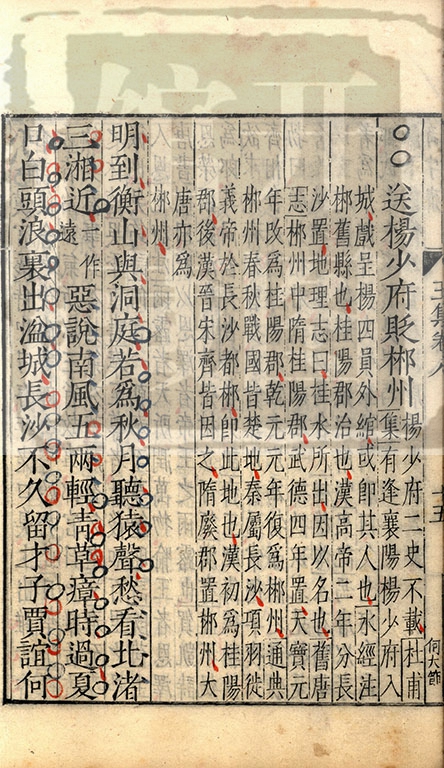 ○○送楊少府貶郴州
楊少府二史不載杜甫
集有逢襄陽楊少府入
城戲呈楊四員外綰或卽其人也水經注
郴舊縣也桂陽郡治也漢高帝二年分長
沙置地理志曰桂水所出因以名也舊唐
志郴州中隋桂陽郡武德四年置天寶元
年改爲桂陽郡乾元元年復爲郴州通典
郴州春秋戰國皆楚地秦屬長沙項羽徙
義帝於長沙都郴卽此地也漢初爲桂陽
郡後漢晉宋齊皆因之隋廢郡置郴州大
唐亦爲
郴州
明到衡山與洞庭若爲秋月聽猿聲愁看北渚
三湘近一作遠惡說南風五兩輕青草瘴時過夏
口白頭浪裏出湓城長沙不久留才子賈誼何